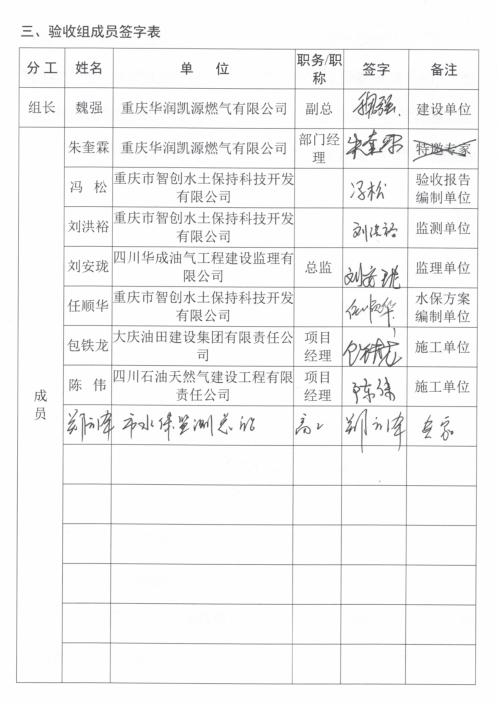 三、验收组成员签字表
分 工 姓名 单 位 职务/职称 签字 备注
组长 魏强 重庆华润凯源燃气有限公司 副总 魏强 建设单位
成员
朱奎霖 重庆华润凯源燃气有限公司 部门经理 朱奎霖 特邀专家
冯 松 重庆市智创水土保持科技开发有限公司 冯松 验收报告编制单位
刘洪裕 重庆市智创水土保持科技开发有限公司 刘洪裕 监测单位
刘安珑 四川华成油气工程建设监理有限公司 总监 刘安珑 监理单位
任顺华 重庆市智创水土保持科技开发有限公司 任顺华 水保方案编制单位
包铁龙 大庆油田建设集团有限责任公司 项目经理 包铁龙 施工单位
陈 伟 四川石油天然气建设工程有限责任公司 项目经理 陈伟 施工单位
市水保监测总站 高工 专家